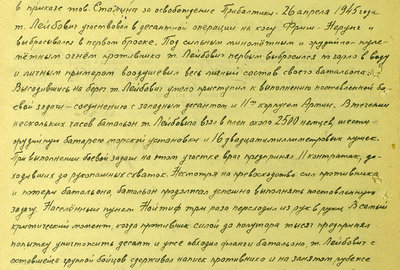 в приказе тов. Сталина за освобождение Прибалтики. 26 апреля 1945 года
т. Лейбович участвовал в десантной операции на косу Фриш-Нерунг и
выбросился в первом броске. Под сильным миномётным и орудийно-пуле-
метным огнём противника т. Лейбович первым выбросился по горло в воду
и личным примером воодушевил весь личный состав своего батальона.
Высадившись на берег т. Лейбович умело приступил к выполнению поставленной бо-
евой задачи - соединению с западным десантом и 11м корпусом Армии. В течении
нескольких часов батальон т. Лейбовича взял в плен около 2500 немцев, шести-
орудийную батарею морской установки и 16 двадцатимиллиметровых пушек.
При выполнении боевой задачи на этом участке враг предпринял 11 контратак, до-
ходивших до рукопашных схваток. Несмотря на превосходство сил противника
и потери батальона, батальон продолжал успешно выполнять поставленную
задачу. Населённый пункт три раза переходил из рук в руки. В самый
критический момент, когда противник силой до полутора тысяч предпринял
попытку уничтожить десант и уже обходил фланги батальона, т. Лейбович с
оставшейся группой бойцов сдерживал натиск противника и на занятом рубеже